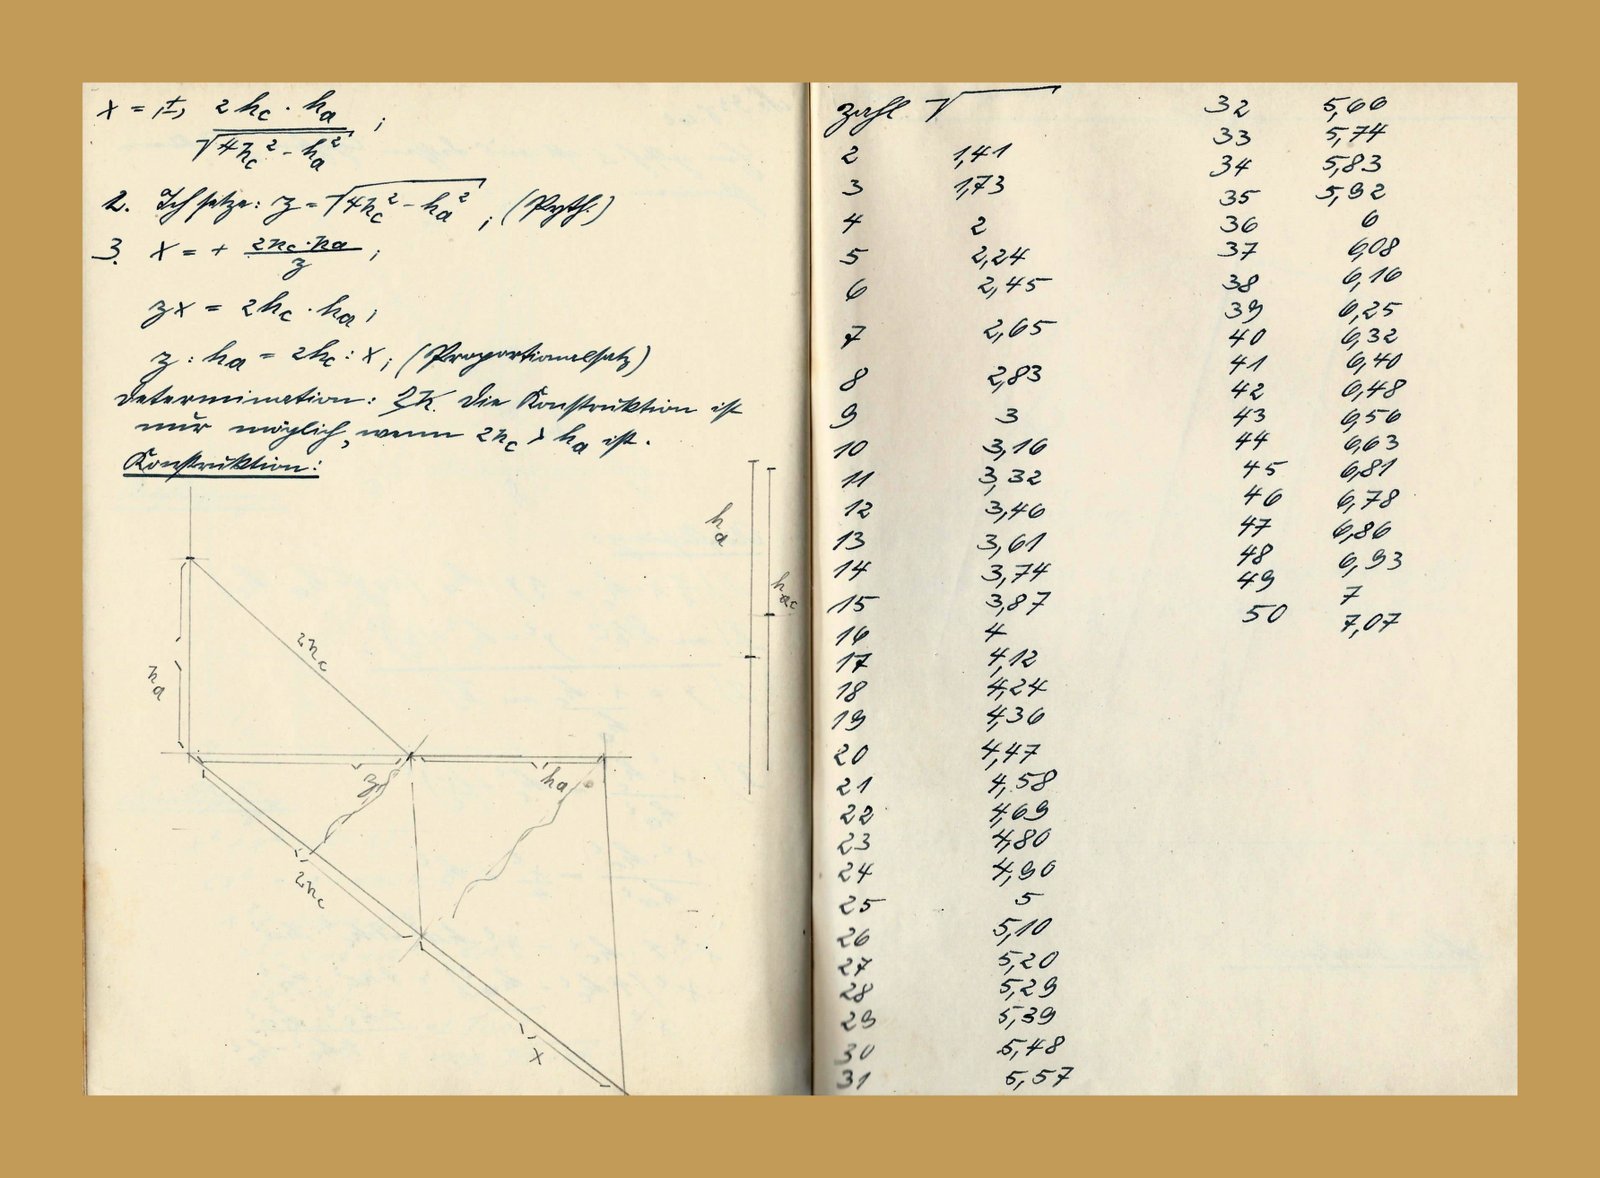 x = (±) 2h_c · h_a / √(4h_c² - h_a²) ;
2. Ich setze: z = √(4h_c² - h_a²) ; (Pyth.)
3. x = + 2h_c · h_a / z ;
zx = 2h_c · h_a ;
z : h_a = 2h_c : x ; (Proportionalsatz)
Determination: Die Konstruktion ist
nur möglich, wenn 2h_c > h_a ist.
Konstruktion:
h_a
h_c
2h_c
h_a
z
h_a
2h_c
x
Zahl √
2 1,41
3 1,73
4 2
5 2,24
6 2,45
7 2,65
8 2,83
9 3
10 3,16
11 3,32
12 3,46
13 3,61
14 3,74
15 3,87
16 4
17 4,12
18 4,24
19 4,36
20 4,47
21 4,58
22 4,69
23 4,80
24 4,90
25 5
26 5,10
27 5,20
28 5,29
29 5,39
30 5,48
31 5,57
32 5,66
33 5,74
34 5,83
35 5,92
36 6
37 6,08
38 6,16
39 6,25
40 6,32
41 6,40
42 6,48
43 6,56
44 6,63
45 6,81
46 6,78
47 6,86
48 6,93
49 7
50 7,07